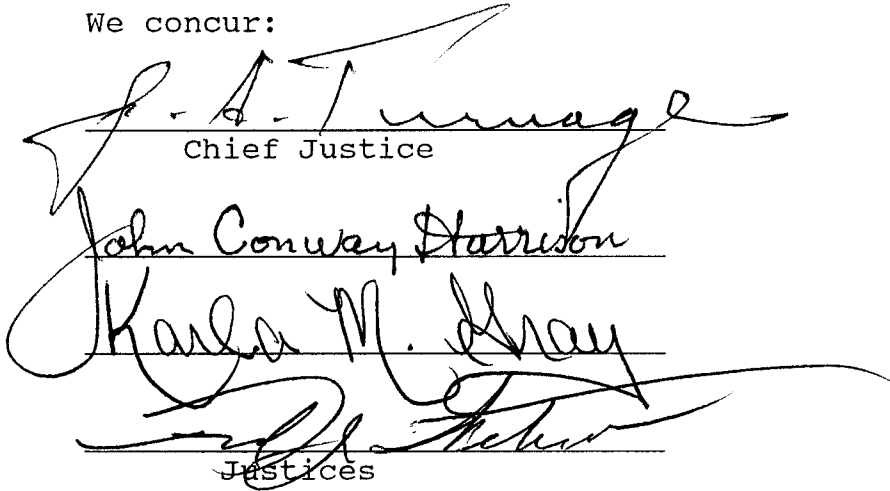 We concur:
J. A. Turnage
Chief Justice
John Conway Harrison
Karla M. Gray
Justices